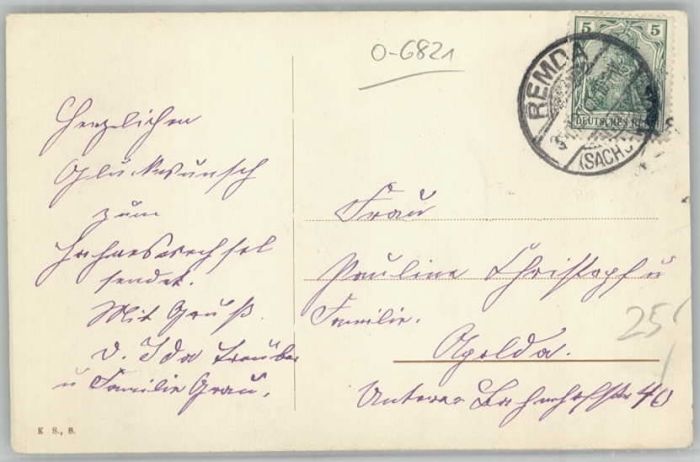 O-6821
5 5
DEUTSCHES REICH
REMDA
(SACHS
Herzlichen
Glückwunsch
zum
Jahreswechsel
sendet.
Mit Gruß.
v. Ida
u Familie Grau.
Frau
Pauline Christopf u
Familie.
Apolda.
Unterer Bahnhofstr 40
25
K S., B.